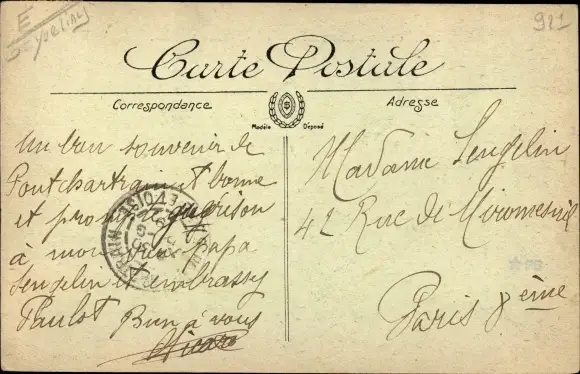 E
Yvelial
921
Carte Postale
Correspondance
Adresse
Modèle Déposé
Un bon souvenir de
Pontchartrain et bonne
et prompte guérison
à mon vieux papa
Lengelin et embrassez
Paulot Bien à vous
Madame Lengelin
42 Rue de Miromesnil
Paris 8 ème